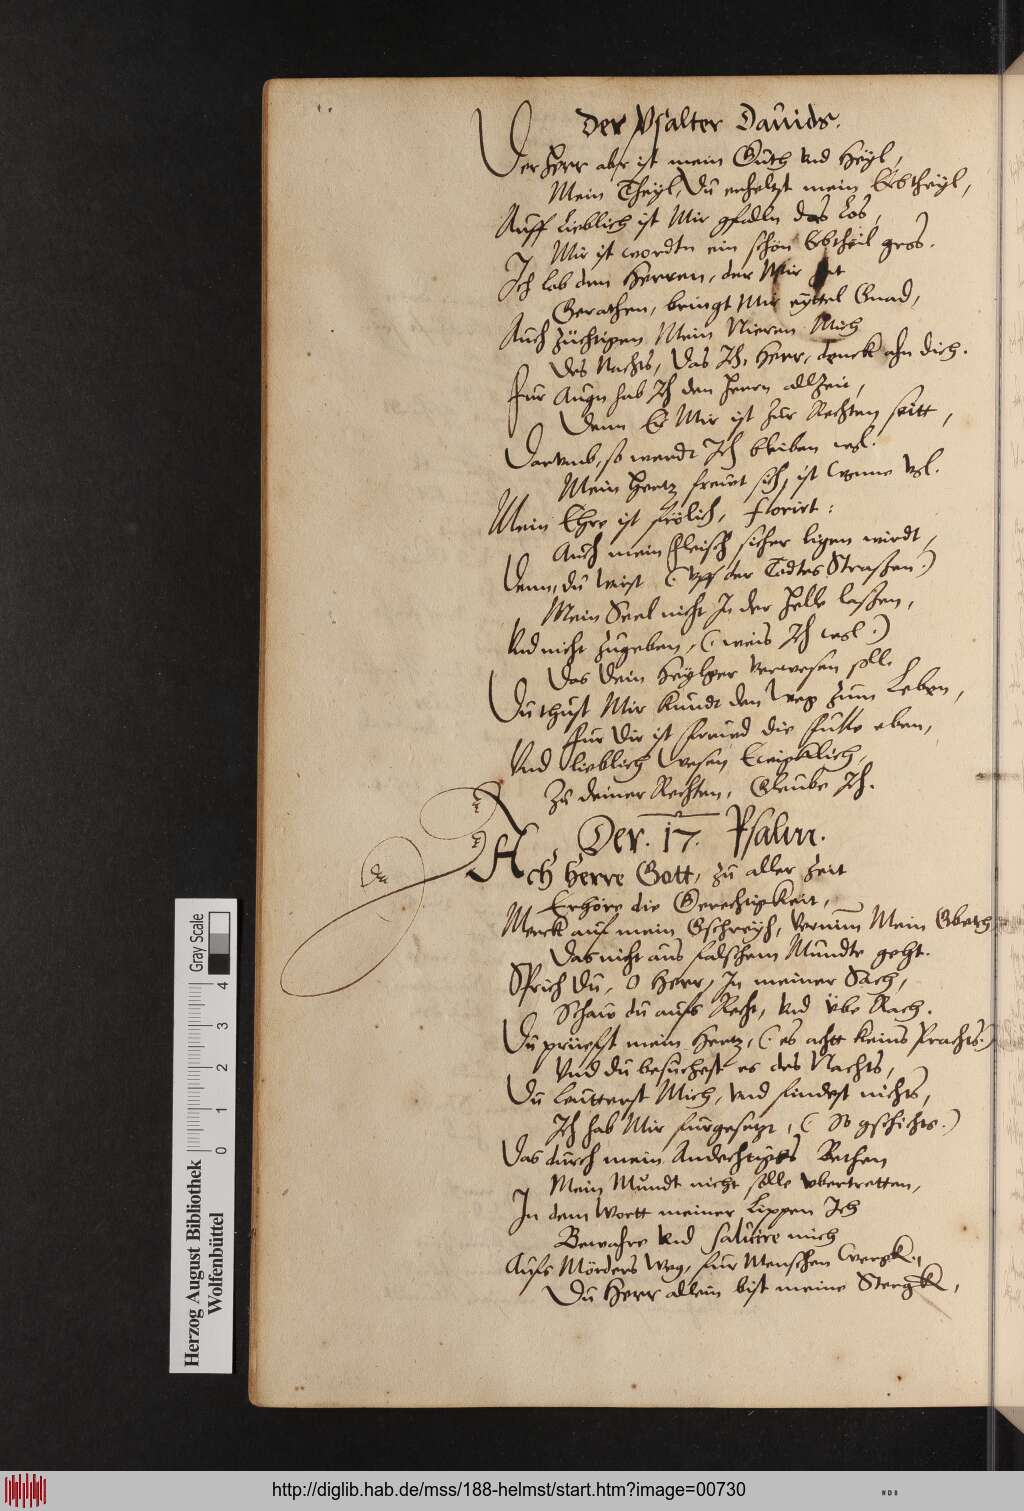 Der Psalter Dauids.
Der Herr aber ist mein Guth vnd Heyl,
Mein Theyl, Du erheltst mein Erbtheyl,
Auff Lieblich ist Mir gfalln das Los,
Mir ist wordtn ein schön Erbtheil gros.
Ich lob den Herren, der Mir hat
Gerathen, bringt Mir eyttel Gnad,
Auch züchtigen Mein Nieren Mich
Des Nachts, Das Ich, Herr, denck ahn dich.
Fur Augn hab Ich den Herrn allzeit,
Denn Er Mir ist zur Rechten seitt,
Darvmb, so werdt Ich bleiben wol.
Mein Hertz freuet sich, ist Wonne vol.
Mein Ehre ist frölich, florirt:
Auch mein Fleisch sicher ligen wirdt,
Denn, du wirst (: vff der Todtes Straßen:)
Mein Seel nicht In der Helle laßen,
Vnd nicht zugeben, (: weis Ich wol:)
Das Dein Heylger verwesen soll.
Du thust Mir kundt den Weg zum Leben,
Fur Dir ist freud die fulle eben,
Vnd lieblich Wesen Ewigklich,
Zu deiner Rechten, Gleube Ich.
Der. 17. Psalm.
Ach Herre Gott, zu aller Zeit
Erhöre die Gerechtigkeit,
Merck auf mein Gschreyh, Vernim Mein Gbeth,
Das nicht aus falschem Mundte geht.
Sprich Du, O Herr, In meiner Sach,
Schaw du aufs Recht, vnd vbe Rach.
Du prüefst mein Hertz, (: es acht keins Prachts:)
Vnd du besuchest es des Nachts,
Du leutterst Mich, vnd findest nichts,
Ich hab Mir furgesetzt, (: So gschichts:)
Das durch mein Andechtigs Bethen
Mein Mundt nicht solle vbertretten,
In dem Wortt meiner Lippen Ich
Bewahre vnd salvire mich
Aufs Mörders Weg, fur Menschen Werck,
Du Herr allein bist meine Sterck,
Herzog August Bibliothek
Wolfenbüttel
0 1 2 3 4
Gray Scale
http://diglib.hab.de/mss/188-helmst/start.htm?image=00730